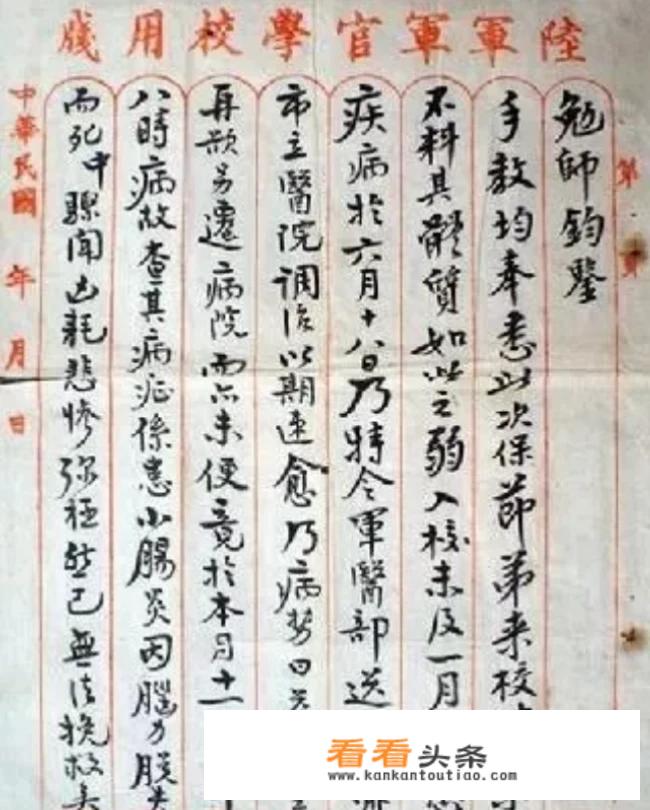 陸軍軍官學校用牋
第 頁
勉師鈞鑒
手教均奉悉此次保節弟来校
不料其體質如此之弱入校未及一月
疾病於六月十八日乃特令軍醫部送
市立醫院調治以期速愈乃病勢日
再欲另遷病院而亦未便竟於本月十一
八時病故查其病症係患小腸炎因腦力脱失
而死中驟聞凶耗悲惨弥極然已無法挽救矣
中華民國 年 月 日
看看头条
www.kankantoutiao.com